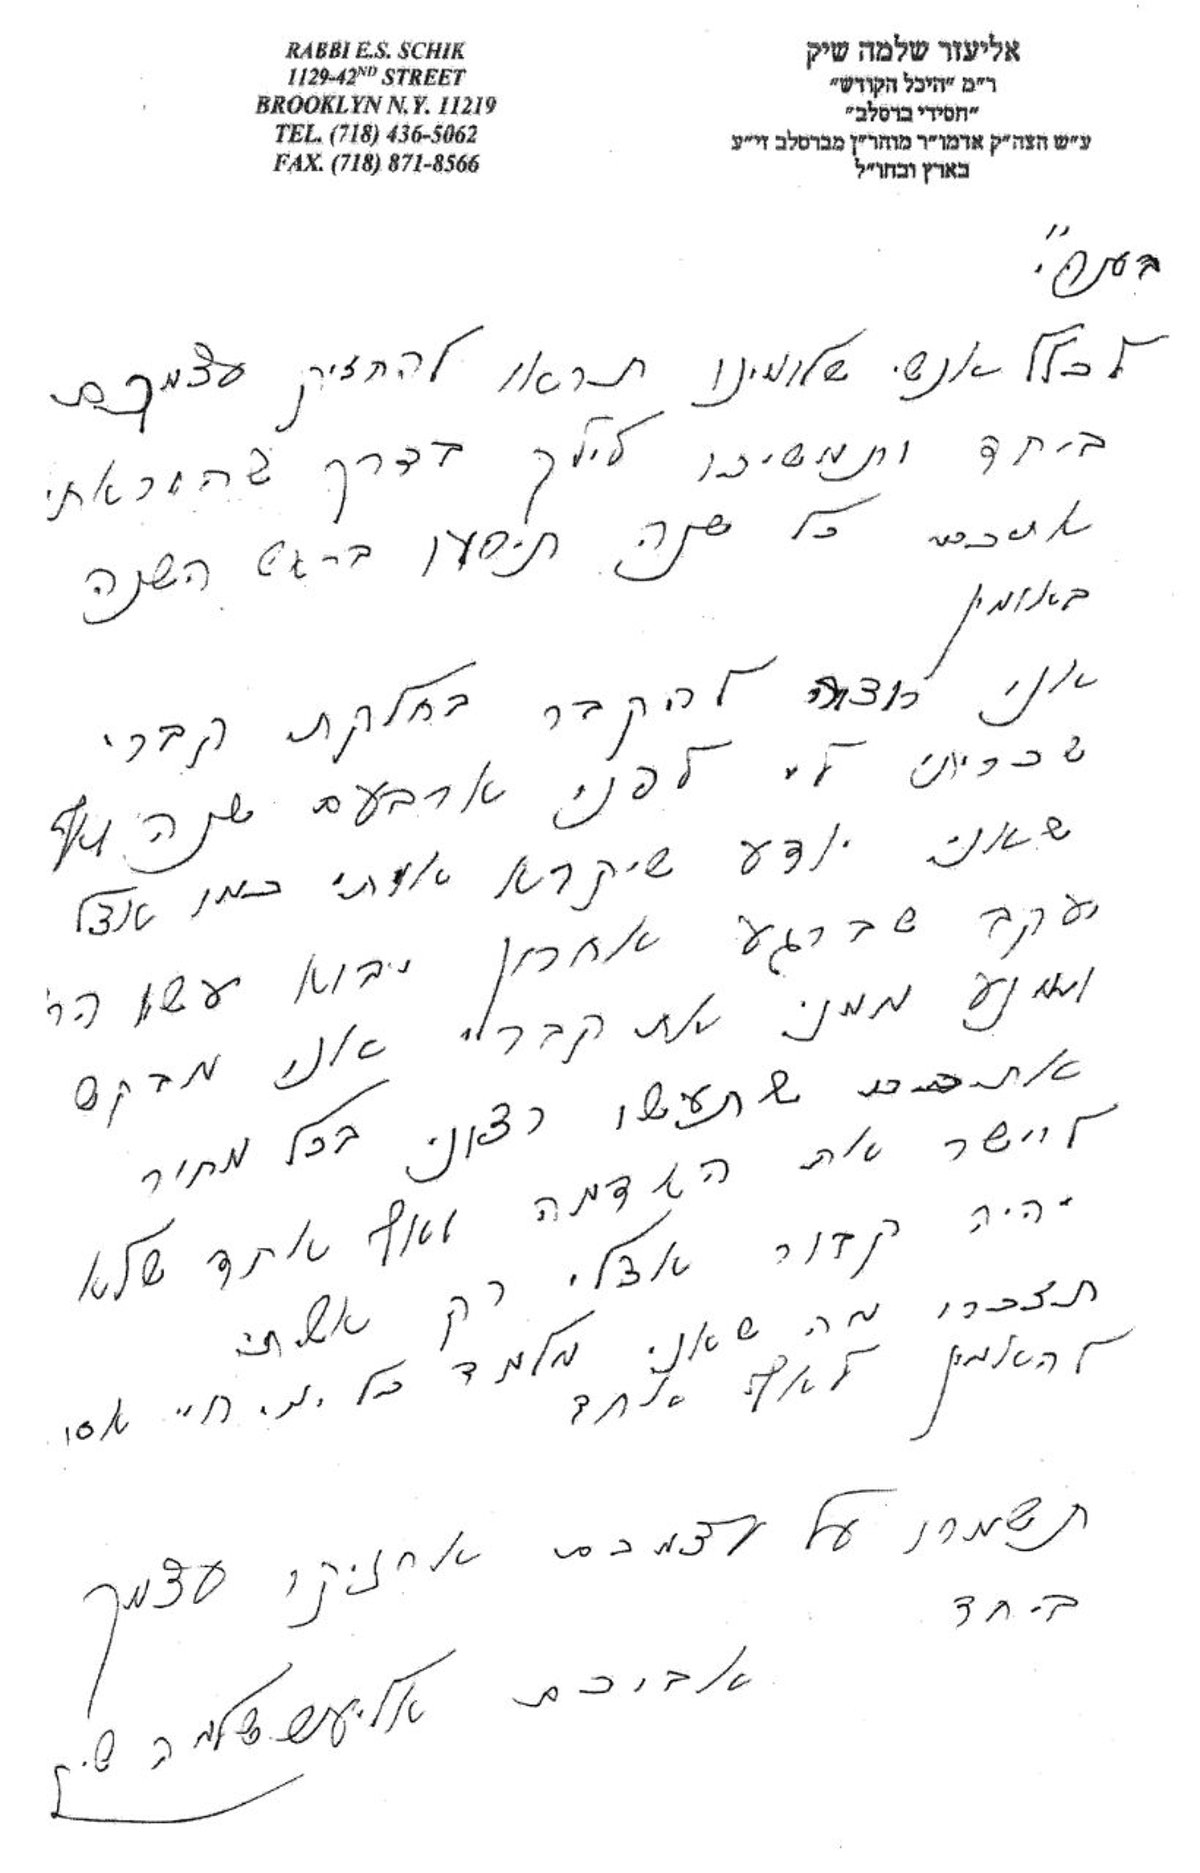 RABBI E.S. SCHIK
1129-42ND STREET
BROOKLYN N.Y. 11219
TEL. (718) 436-5062
FAX. (718) 871-8566
אליעזר שלמה שיק
ר״מ ״היכל הקודש״
״חסידי ברסלב״
ע״ש הצה״ק אדמו״ר מוהר״ן מברסלב זי״ע
בארץ ובחו״ל
לכלל אנשי שלומינו תראו להחזיק עצמכם
ביחד ותמשיכו לילך בדרך שהוראתי
אתכם כל שנה תיסעו בראש השנה
באומין
אני רוצה להקבר בחלקת קברי
שכריתי לי לפני ארבעם שנה ואף
שאני יודע שיקרא אותי כמו אצל
יעקב שברגע אחרון יבוא עשו הר׳
וימנע ממני את קברי אני מבקש
אתכם שתעשו רצוני בכל מחיר
ליישר את האדמה ואף אחד שלא
יהיה קבור אצלי רק אשתי
תזכרו מה שאני מלמד כל ימי חיי אסו
להאמין לאף אחד
תשמרו על עצמכם אחזיקו עצמך
ביחד
אביכם אליעזר שלמה שיק